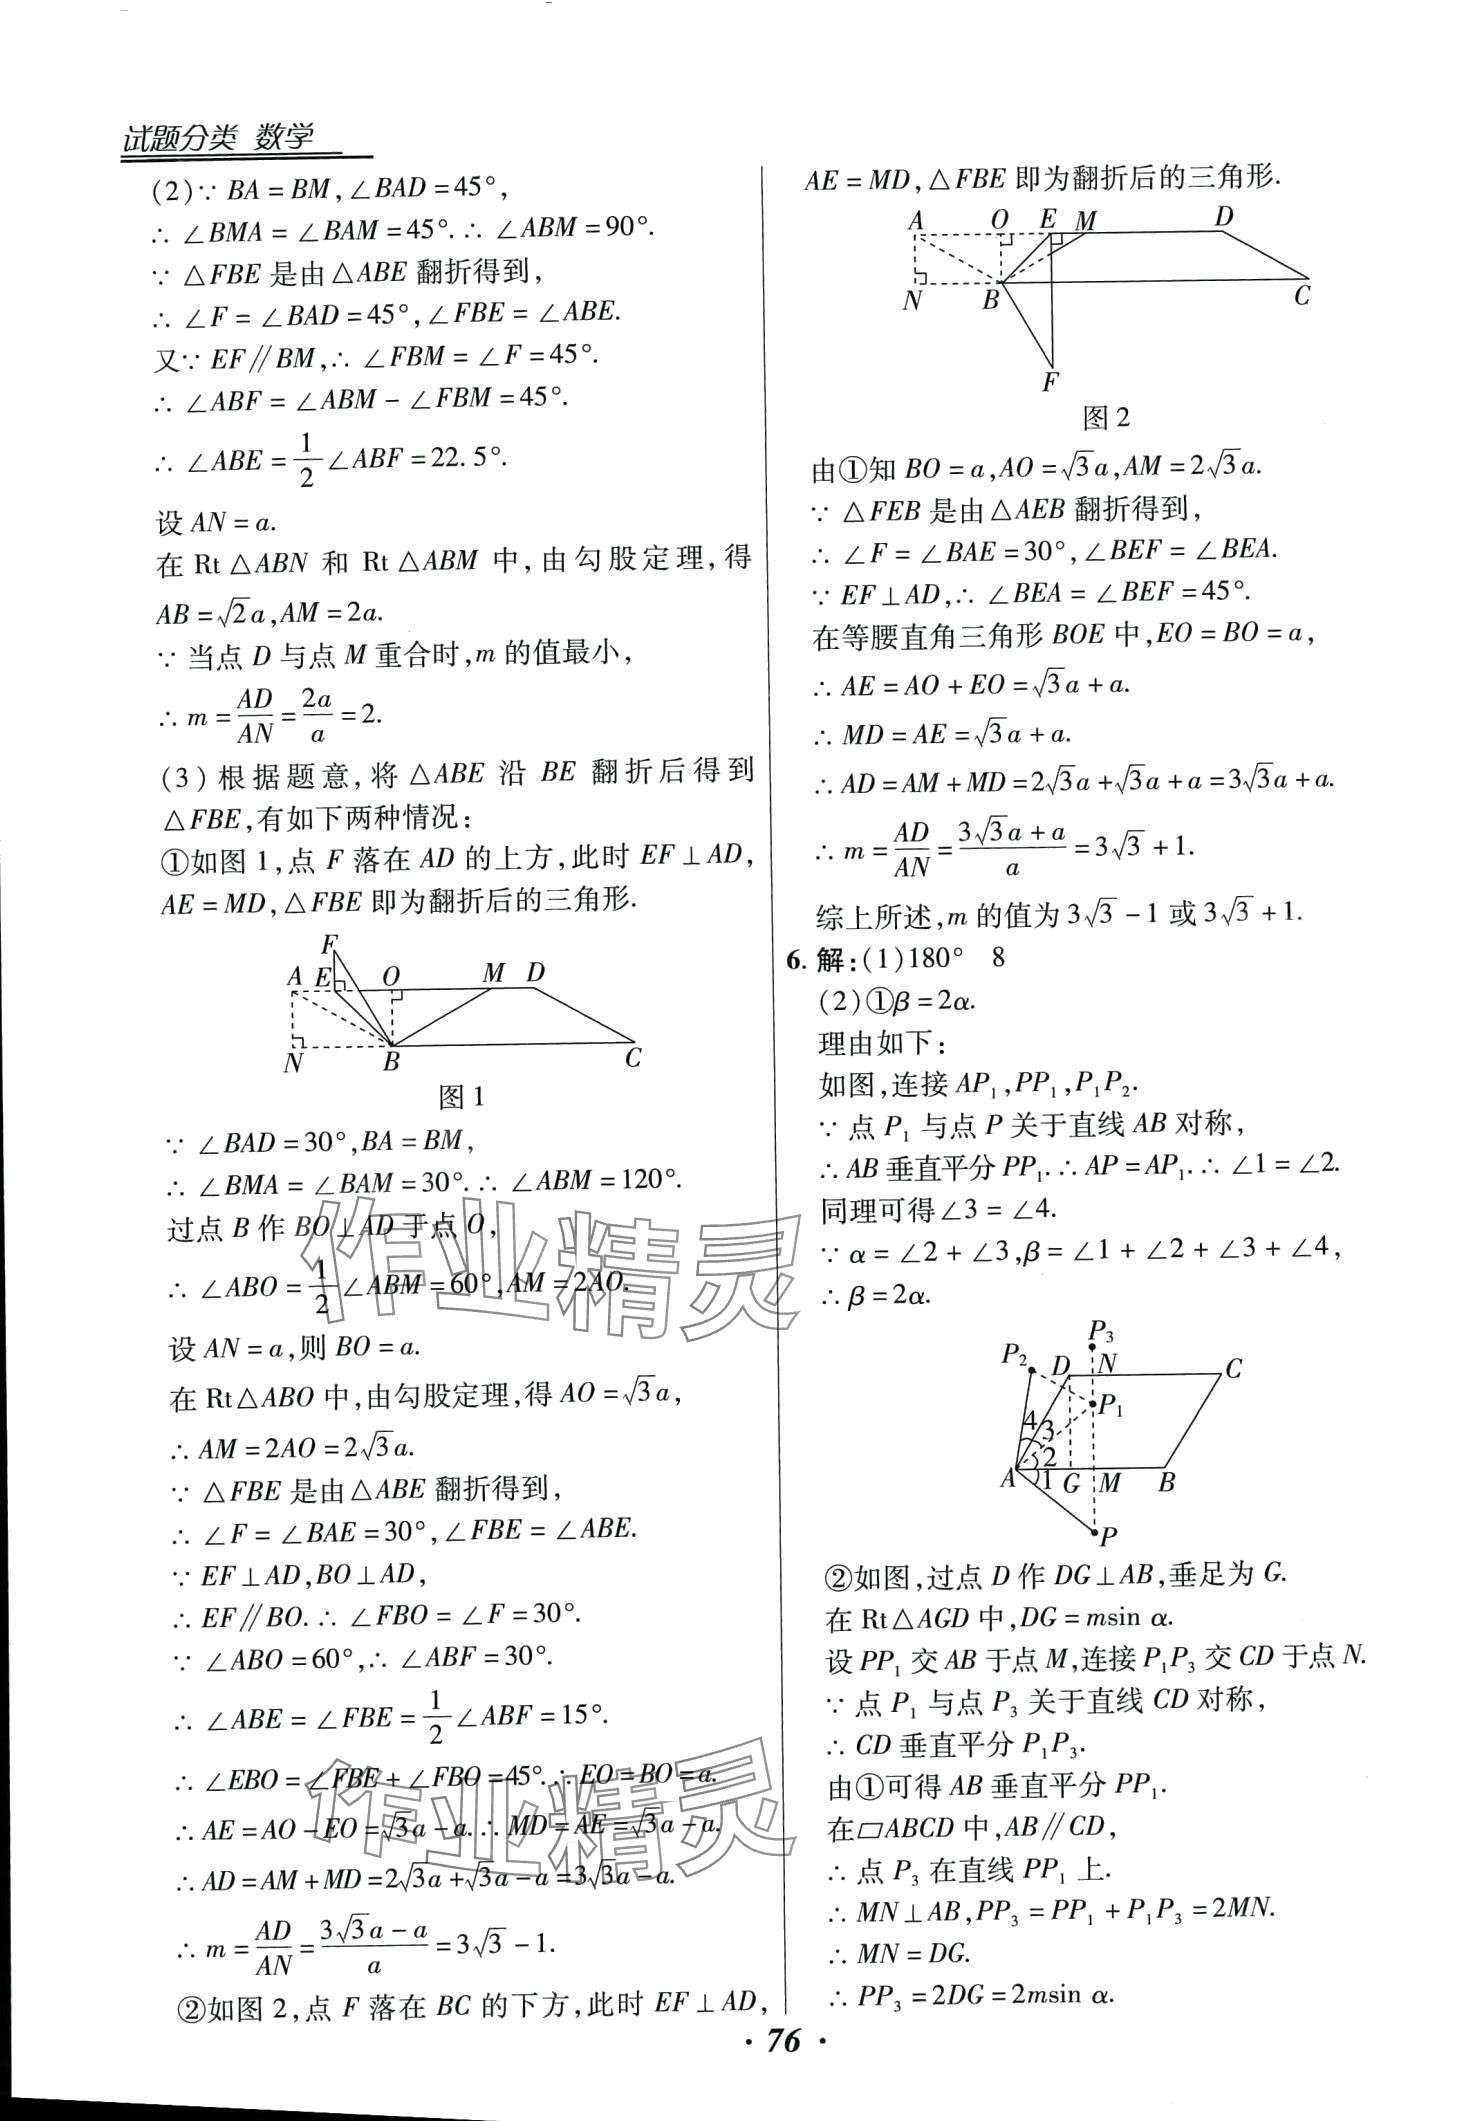 试题分类 数学
(2)∵ BA=BM,∠BAD=45°,
∴ ∠BMA=∠BAM=45°.∴ ∠ABM=90°.
∵ △FBE 是由△ABE 翻折得到,
∴ ∠F=∠BAD=45°,∠FBE=∠ABE.
又∵ EF∥BM,∴ ∠FBM=∠F=45°.
∴ ∠ABF=∠ABM-∠FBM=45°.
∴ ∠ABE=1/2∠ABF=22.5°.
设 AN=a.
在 Rt△ABN 和 Rt△ABM 中,由勾股定理,得
AB=√2a,AM=2a.
∵ 当点 D 与点 M 重合时,m 的值最小,
∴ m=AD/AN=2a/a=2.
(3)根据题意,将△ABE 沿 BE 翻折后得到
△FBE,有如下两种情况:
①如图 1,点 F 落在 AD 的上方,此时 EF⊥AD,
AE=MD,△FBE 即为翻折后的三角形.
F
A E O M D
N B C
图 1
∵ ∠BAD=30°,BA=BM,
∴ ∠BMA=∠BAM=30°.∴ ∠ABM=120°.
过点 B 作 BO⊥AD 于点 O,
∴ ∠ABO=1/2∠ABM=60°,AM=2AO.
设 AN=a,则 BO=a.
在 Rt△ABO 中,由勾股定理,得 AO=√3a,
∴ AM=2AO=2√3a.
∵ △FBE 是由△ABE 翻折得到,
∴ ∠F=∠BAE=30°,∠FBE=∠ABE.
∵ EF⊥AD,BO⊥AD,
∴ EF∥BO.∴ ∠FBO=∠F=30°.
∵ ∠ABO=60°,∴ ∠ABF=30°.
∴ ∠ABE=∠FBE=1/2∠ABF=15°.
∴ ∠EBO=∠FBE+∠FBO=45°.∴ EO=BO=a.
∴ AE=AO-EO=√3a-a.∴ MD=AE=√3a-a.
∴ AD=AM+MD=2√3a+√3a-a=3√3a-a.
∴ m=AD/AN=(3√3a-a)/a=3√3-1.
②如图 2,点 F 落在 BC 的下方,此时 EF⊥AD,
AE=MD,△FBE 即为翻折后的三角形.
A O E M D
N B C
F
图 2
由①知 BO=a,AO=√3a,AM=2√3a.
∵ △FEB 是由△AEB 翻折得到,
∴ ∠F=∠BAE=30°,∠BEF=∠BEA.
∵ EF⊥AD,∴ ∠BEA=∠BEF=45°.
在等腰直角三角形 BOE 中,EO=BO=a,
∴ AE=AO+EO=√3a+a.
∴ MD=AE=√3a+a.
∴ AD=AM+MD=2√3a+√3a+a=3√3a+a.
∴ m=AD/AN=(3√3a+a)/a=3√3+1.
综上所述,m 的值为 3√3-1 或 3√3+1.
6. 解:(1)180° 8
(2)①β=2α.
理由如下:
如图,连接 AP₁,PP₁,P₁P₂.
∵ 点 P₁ 与点 P 关于直线 AB 对称,
∴ AB 垂直平分 PP₁.∴ AP=AP₁.∴ ∠1=∠2.
同理可得∠3=∠4.
∵ α=∠2+∠3,β=∠1+∠2+∠3+∠4,
∴ β=2α.
P₃
P₂ D N C
P₁
4 3
2
A 1 G M B
P
②如图,过点 D 作 DG⊥AB,垂足为 G.
在 Rt△AGD 中,DG=msin α.
设 PP₁ 交 AB 于点 M,连接 P₁P₃ 交 CD 于点 N.
∵ 点 P₁ 与点 P₃ 关于直线 CD 对称,
∴ CD 垂直平分 P₁P₃.
由①可得 AB 垂直平分 PP₁.
在▱ABCD 中,AB∥CD,
∴ 点 P₃ 在直线 PP₁ 上.
∴ MN⊥AB,PP₃=PP₁+P₁P₃=2MN.
∴ MN=DG.
∴ PP₃=2DG=2msin α.
· 76 ·
作业精灵
作业精灵